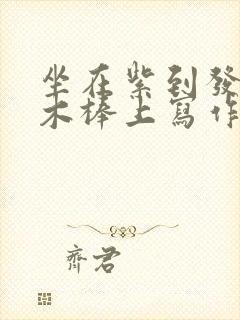 坐在紫到發
木棒上寫作
齊君